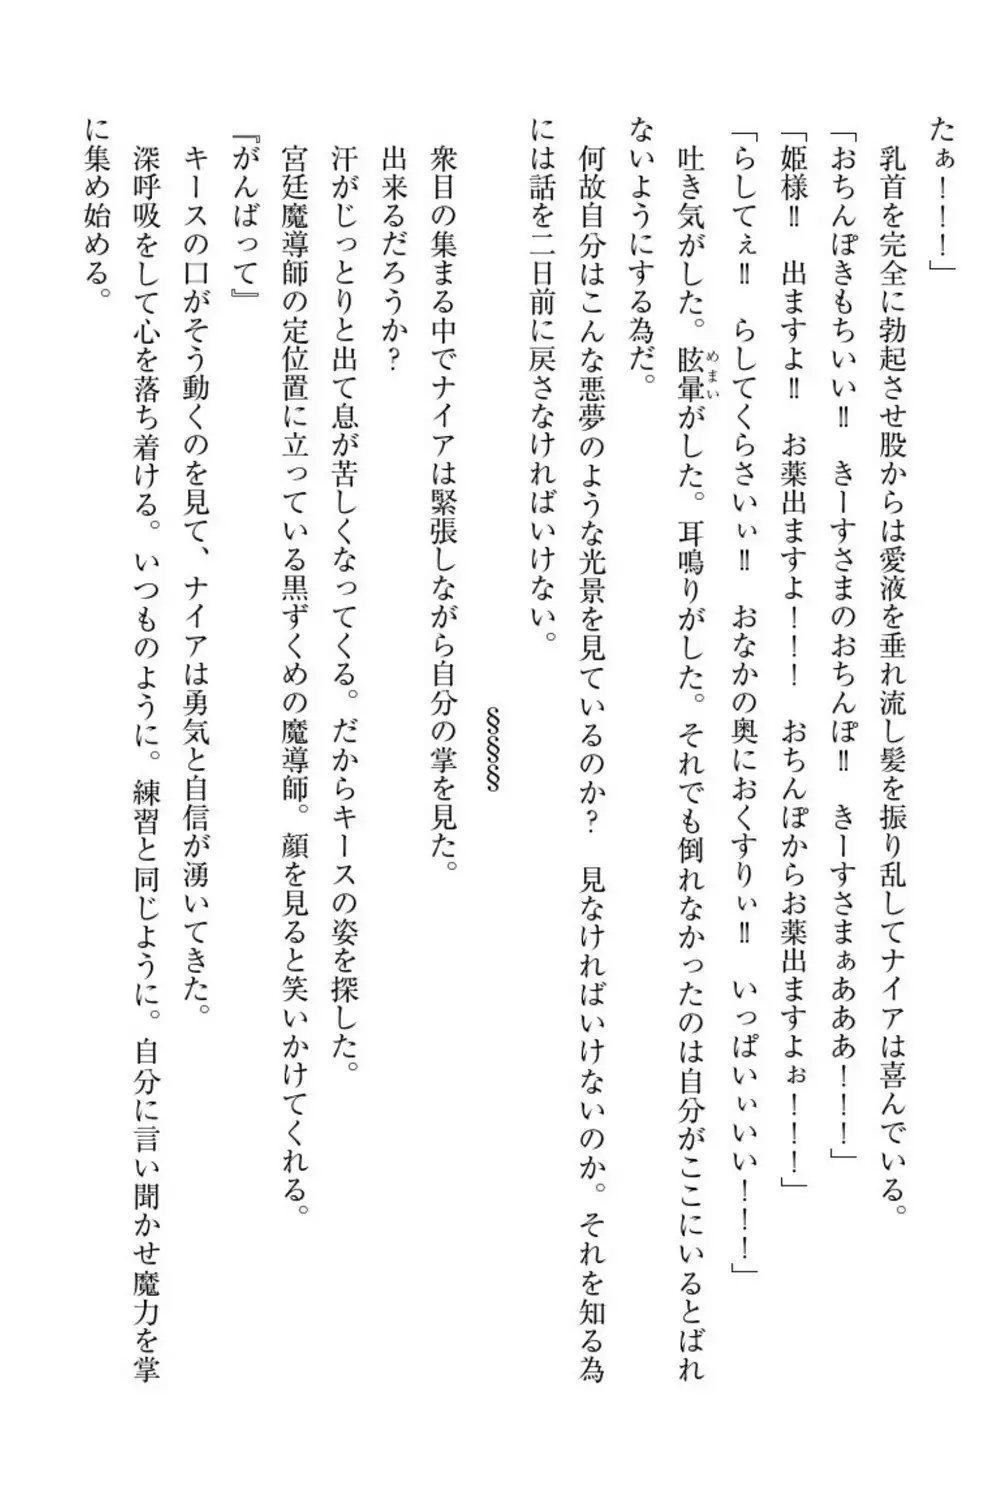 たぁ！！！」
乳首を完全に勃起させ股からは愛液を垂れ流し髪を振り乱してナイアは喜んでいる。
「おちんぽきもちいい‼　きーすさまのおちんぽ‼　きーすさまぁああ！！！」
「姫様‼　出ますよ‼　お薬出ますよ！！！　おちんぽからお薬出ますよぉ！！！」
「らしてぇ‼　らしてくらさいぃ‼　おなかの奥におくすりぃ‼　いっぱいぃいい！！！」
吐き気がした。眩暈がした。耳鳴りがした。それでも倒れなかったのは自分がここにいるとばれ
めまい
ないようにする為だ。
何故自分はこんな悪夢のような光景を見ているのか？　見なければいけないのか。それを知る為
には話を二日前に戻さなければいけない。
§§§
衆目の集まる中でナイアは緊張しながら自分の掌を見た。
出来るだろうか？
汗がじっとりと出て息が苦しくなってくる。だからキースの姿を探した。
宮廷魔導師の定位置に立っている黒ずくめの魔導師。顔を見ると笑いかけてくれる。
『がんばって』
キースの口がそう動くのを見て、ナイアは勇気と自信が湧いてきた。
深呼吸をして心を落ち着ける。いつものように。練習と同じように。自分に言い聞かせ魔力を掌
に集め始める。